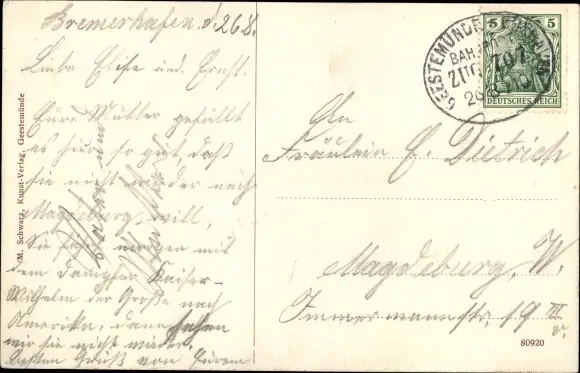 Bremerhafen d. 26.8.
Liebe Elise und Ernst.
Eure Mutter gefällt
es hier so gut, daß
sie nicht wieder nach
Magdeburg will,
Sie fährt morgen mit
dem Dampfer Kaiser-
Wilhelm der Große nach
Amerika, dann sehen
wir sie nicht wieder.
Besten Gruß von Eurem
M. Schwarz, Kunst-Verlag, Geestemünde
GEESTEMÜNDE
BAHNPOST
ZUG 707
26
5 5
DEUTSCHES REICH
An
Fräulein E. Dietrich
Magdeburg, W.
Immermannstr. 19 III
v.
80920